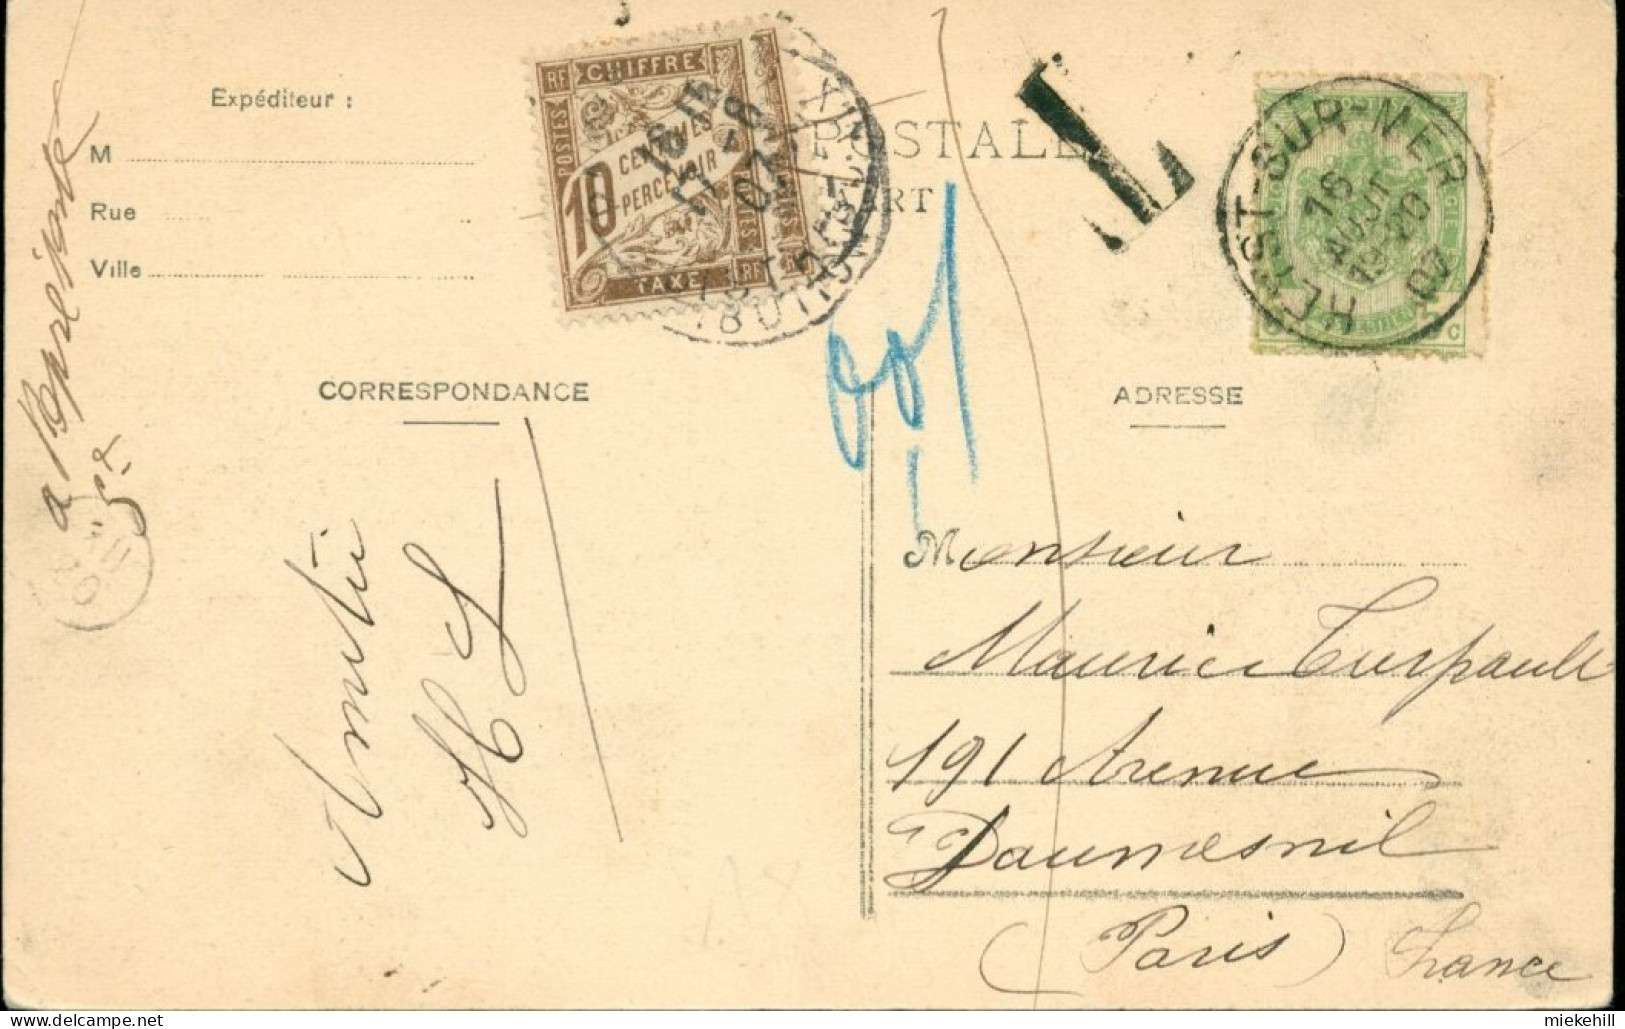 Expéditeur :
M
Rue
Ville
RF CHIFFRE
POSTES
10 CENTIMES
À PERCEVOIR
TAXE RF
DISTRIBUTION
POSTALE
T
HEYST-SUR-MER
16
AOUT
19-20
07
5 c
CORRESPONDANCE
ADRESSE
Amitié
Monsieur
Maurice Turpault
191 Avenue
Daumesnil
(Paris) France
miekehill